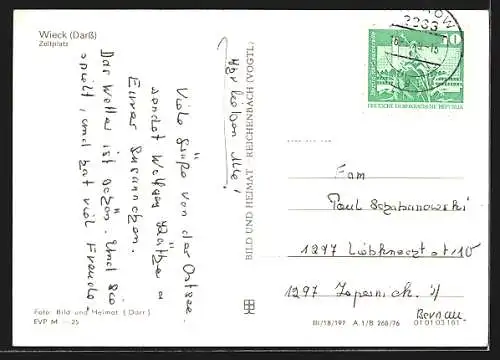 Wieck (Darß)
Zeltplatz
Ihr lieben Alle!
Viele Grüße von der Ostsee
sendet
Eurer Susannchen.
Das Wetter ist schön. Und sie
spielt, und hat viel Freude.
Foto: Bild und Heimat (Darr)
EVP M —25
BILD UND HEIMAT REICHENBACH (VOGTL)
10
DEUTSCHE DEMOKRATISCHE REPUBLIK
Fam
Paul
1297
1297 Zepernick b/
Bernau
III/18/197 A.1/B 268/76 01 01 03 161